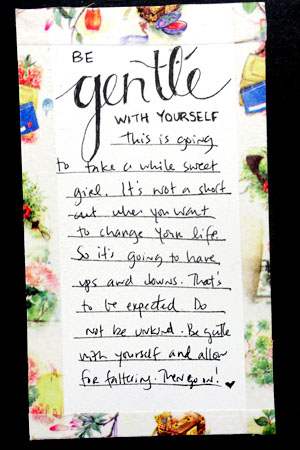 BE
gentle
WITH YOURSELF
This is going
to take a while sweet
girl. It's not a short
cut when you want
to change your life.
So it's going to have
ups and downs. That's
to be expected. Do
not be unkind. Be gentle
with yourself and allow
for faltering. Then go on!